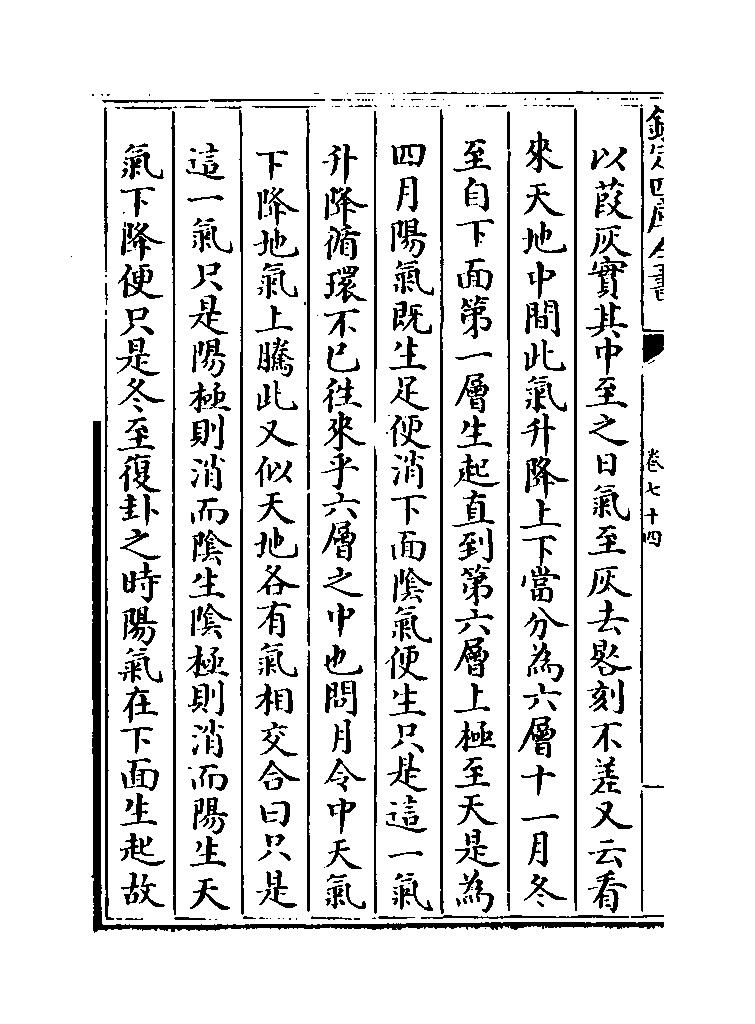 欽定四庫全書
卷七十四
以葭灰實其中至之日氣至灰去晷刻不差又云看
來天地中間此氣升降上下當分為六層十一月冬
至自下面第一層生起直到第六層上極至天是為
四月陽氣既生足便消下面陰氣便生只是這一氣
升降循環不已徃來乎六層之中也問月令中天氣
下降地氣上騰此又似天地各有氣相交合曰只是
這一氣只是陽極則消而陰生陰極則消而陽生天
氣下降便只是冬至復卦之時陽氣在下面生起故